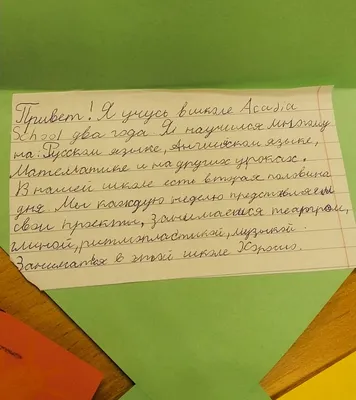 Привет! Я учусь в школе Acadia
School два года. Я научился многому
на: Русском языке, Английском языке,
Математике и на других уроках.
В нашей школе есть вторая половина
дня. Мы каждую неделю представляем
свои проекты, занимаемся театром,
глиной, ритмопластикой, музыкой.
Заниматься в этой школе Хорошо.